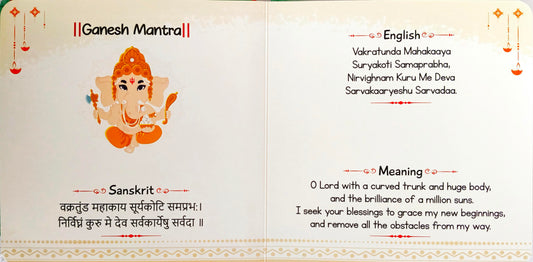 ||Ganesh Mantra||
Sanskrit
वक्रतुंड महाकाय सूर्यकोटि समप्रभ:।
निर्विघ्नं कुरु मे देव सर्वकार्येषु सर्वदा ॥
English
Vakratunda Mahakaaya
Suryakoti Samaprabha,
Nirvighnam Kuru Me Deva
Sarvakaaryeshu Sarvadaa.
Meaning
O Lord with a curved trunk and huge body,
and the brilliance of a million suns.
I seek your blessings to grace my new beginnings,
and remove all the obstacles from my way.